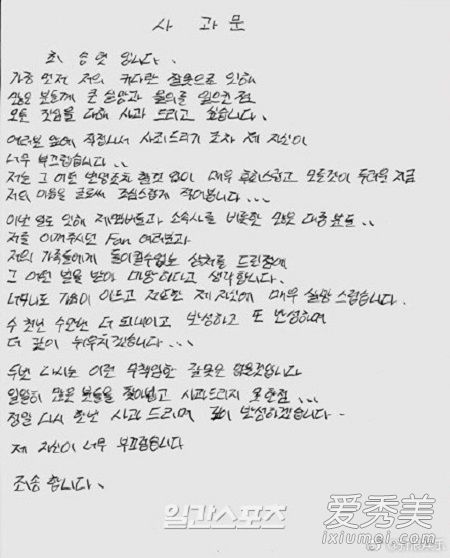 사 과 문
최 승 현 입니다..
가장 먼저 저의 커다란 잘못으로 인해
많은 분들께 큰 실망과 물의를 일으킨 점
모든 진심을 다해 사과 드리고 싶습니다.
여러분 앞에 직접나서 사죄드리기 조차 제 자신이
너무 부끄럽습니다..
저는 그 어떤 변명조차 할것 없이 매우 후회스럽고 모든것이 두려운 지금
저의 마음을 글로써 조심스럽게 적어봅니다...
이번 일로 인해 제 멤버들과 소속사를 비롯한 많은 대중분들..
저를 아껴주시던 Fan 여러분과
저의 가족들에게 돌이킬수없는 상처를 드린점에
그 어떤 벌을 받아 마땅하다고 생각합니다.
너무나도 가슴이 아프고 저조한 제 자신에 매우 실망 스럽습니다.
수 천번 수만번 더 되새이고 반성하고 또 반성하며
더 깊이 뉘우치겠습니다...
두번 다시는 이런 무책임한 잘못은 없을것입니다
일일히 많은 분들을 찾아뵙고 사과드리지 못한점...
정말 다시 한번 사과 드리며 깊이 반성하겠습니다.
제 자신이 너무 부끄럽습니다
죄송 합니다.
일간스포츠
爱秀美
ixiumei.com